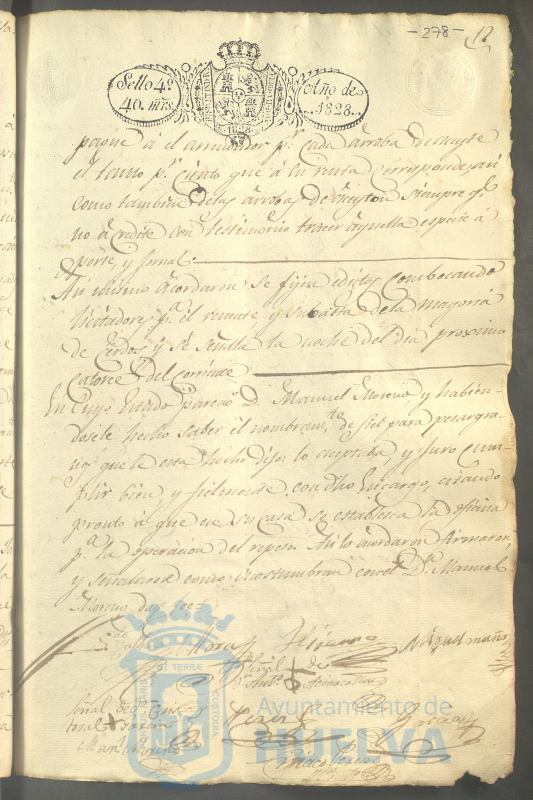 -278- 12
Sello 4º
40. mrs
Año de
1828.
1828
pague á el arrendador pr. cada arroba de
el tanto pr. ciento que á su renta corresponde, así
como tambien de las arrobas de siempre qe.
no acredite con testimonio traer aquella especie á
porte, y jornal.
Asi mismo acordaron se fijen edictos combocando
licitadores pa. el remate y subasta de la
de Cerdos, y se señala la noche del dia proximo
catorce del corriente
En cuyo Estado parecio D. Manuel Moreno y habien-
dosele hecho saber el nombramto. de fiel para pesar gra-
nos que le está hecho dijo: lo aceptaba, y juro cum-
plir bien y fielmente con dho Encargo, estando
pronto á que en su casa se establesca la oficina
pa. la operacion del repeso. Asi lo acordaron firmaron,
y señalaron como acostumbran con el Dn. Manuel
Moreno doy fee=
Mora
Señal de
Señal de
Garcia
Perez
Garcia
Man. Moreno
Ayuntamiento de
HUELVA